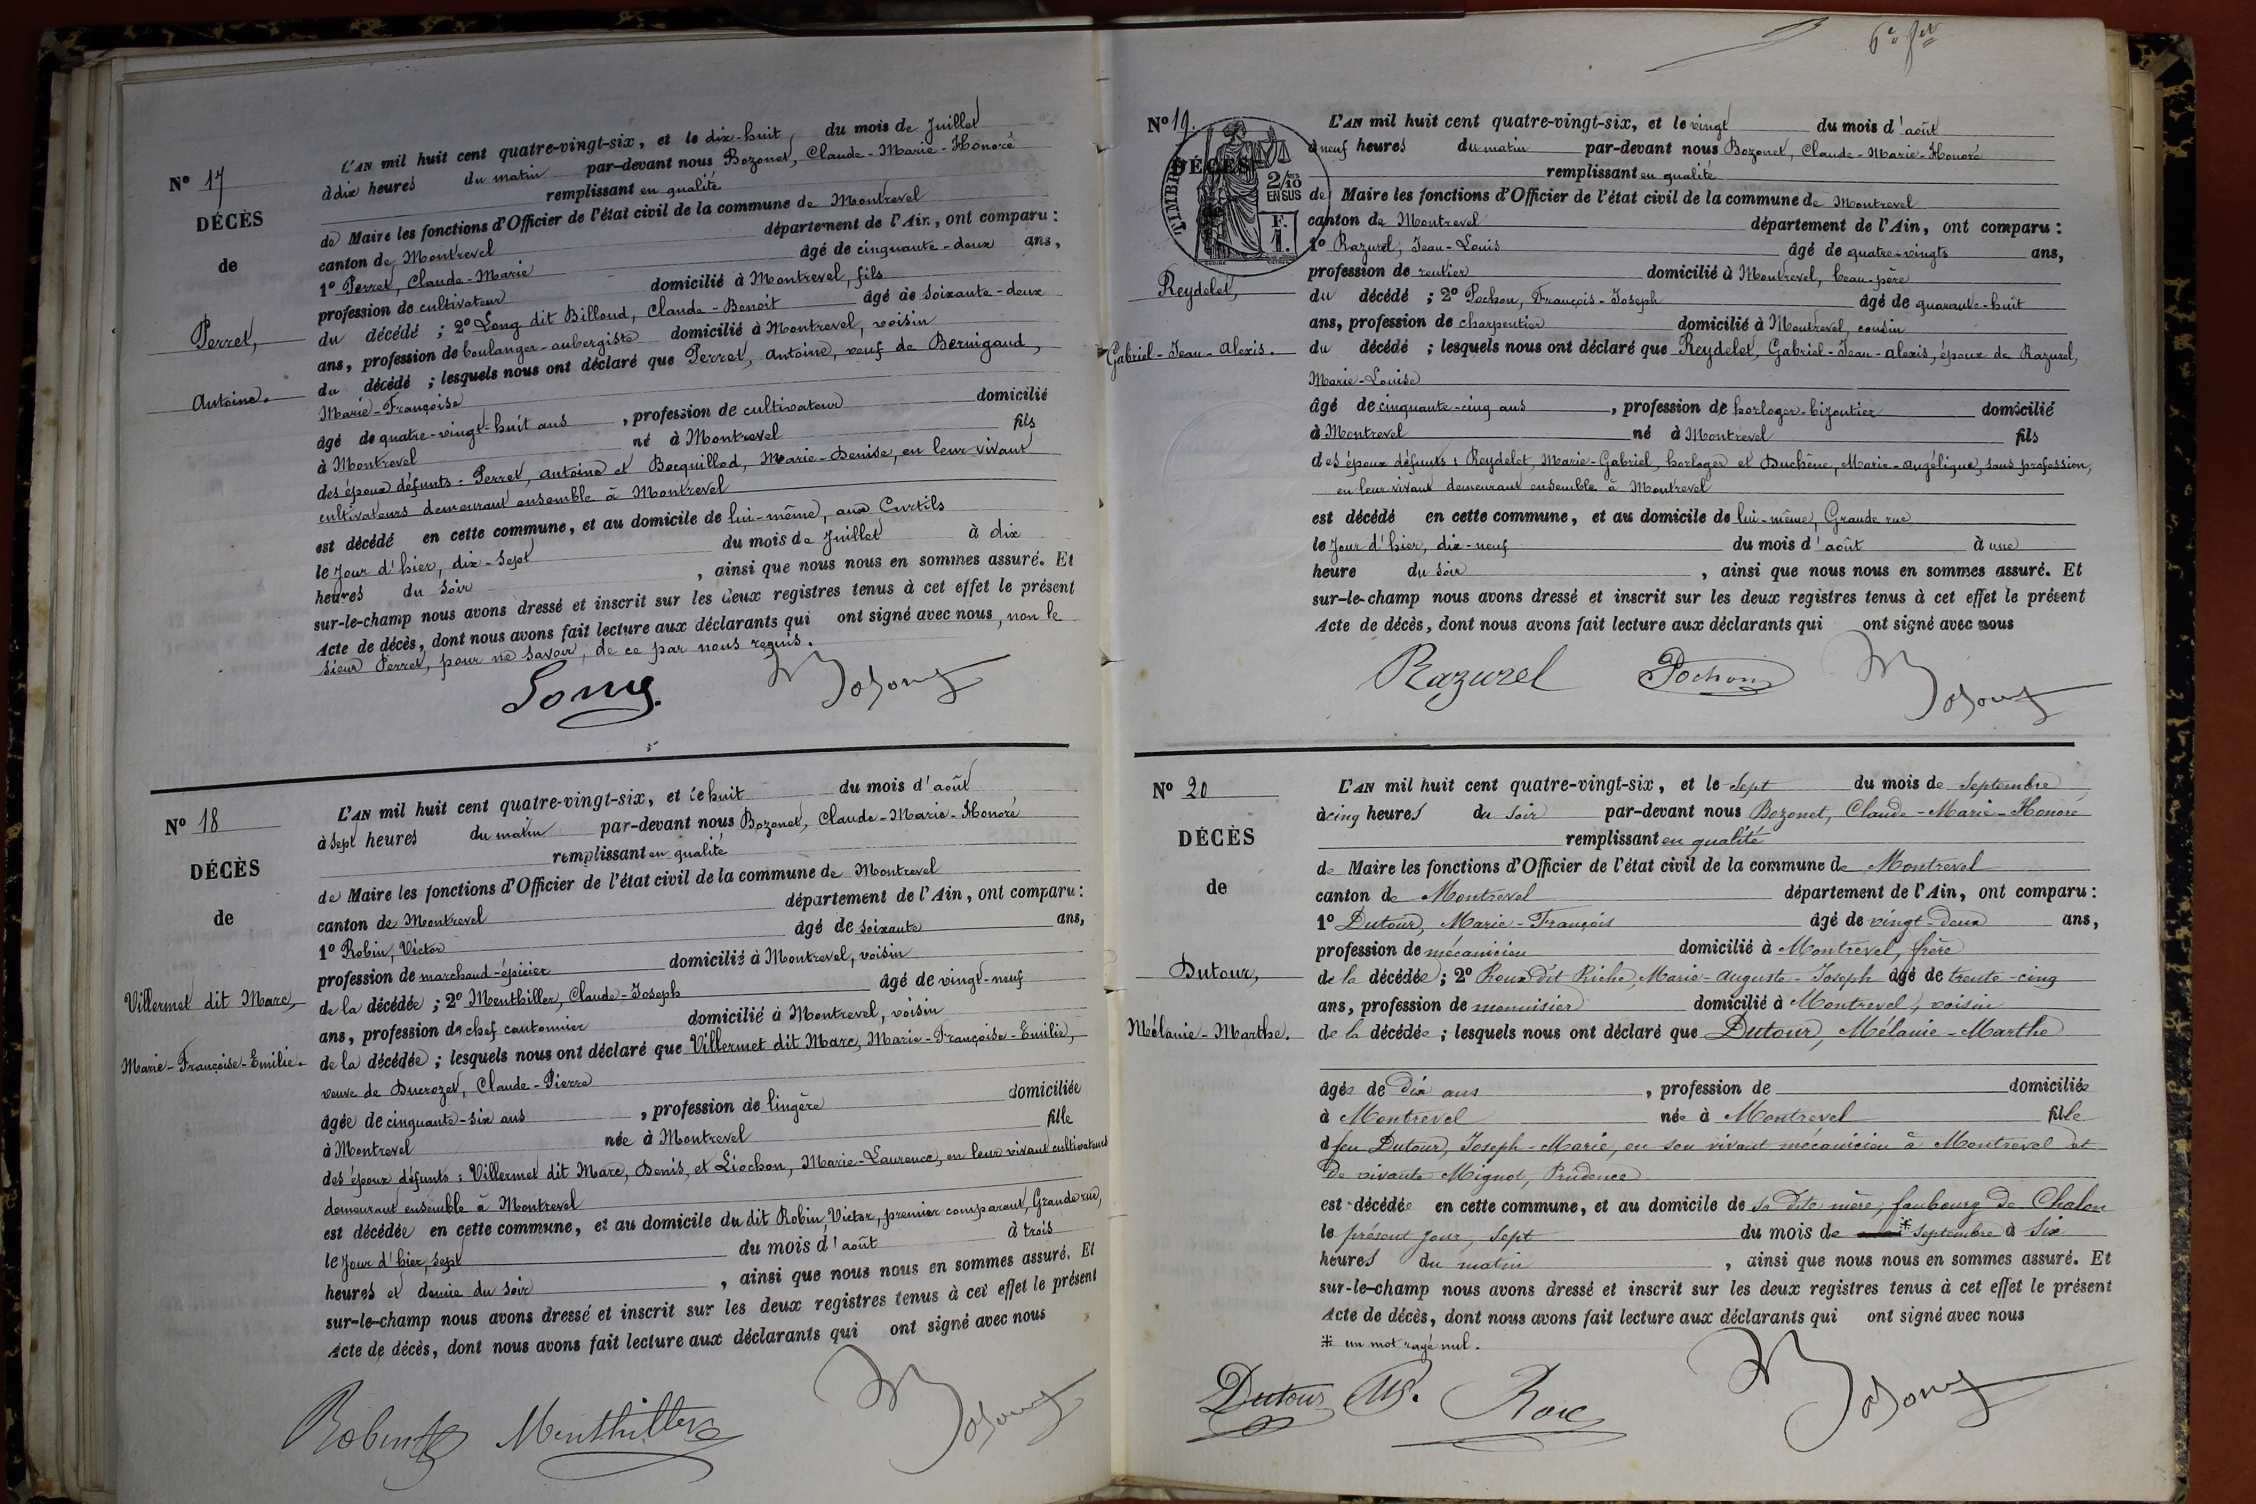 N° 17
DÉCÈS
de
Perret,
Antoine.
L'AN mil huit cent quatre-vingt-six, et le dix-huit du mois de Juillet
à dix heures du matin par-devant nous Bozonet, Claude-Marie-Honoré
remplissant en qualité
de Maire les fonctions d'Officier de l'état civil de la commune de Montrevel
canton de Montrevel département de l'Ain, ont comparu :
1° Perret, Claude-Marie âgé de cinquante-deux ans,
profession de cultivateur domicilié à Montrevel, fils
du décédé ; 2° Long dit Billoud, Claude-Benoit âgé de soixante-deux
ans, profession de boulanger-aubergiste domicilié à Montrevel, voisin
du décédé ; lesquels nous ont déclaré que Perret, Antoine, veuf de Bernigaud,
Marie-Françoise
âgé de quatre-vingt-huit ans , profession de cultivateur domicilié
à Montrevel né à Montrevel fils
des époux défunts : Perret, Antoine et Bocquillod, Marie-Denise, en leur vivant
cultivateurs demeurant ensemble à Montrevel
est décédé en cette commune, et au domicile de lui-même, aux Curtils
le Jour d'hier, dix-sept du mois de Juillet à dix
heures du soir , ainsi que nous nous en sommes assuré. Et
sur-le-champ nous avons dressé et inscrit sur les deux registres tenus à cet effet le présent
Acte de décès, dont nous avons fait lecture aux déclarants qui ont signé avec nous, non le
sieur Perret, pour ne savoir, de ce par nous requis.
Long Bozonet
N° 18
DÉCÈS
de
Villermet dit Marc,
Marie-Françoise-Emilie.
L'AN mil huit cent quatre-vingt-six, et le huit du mois d'août
à sept heures du matin par-devant nous Bozonet, Claude-Marie-Honoré
remplissant en qualité
de Maire les fonctions d'Officier de l'état civil de la commune de Montrevel
canton de Montrevel département de l'Ain, ont comparu :
1° Robin, Victor âgé de soixante ans,
profession de marchand-épicier domicilié à Montrevel, voisin
de la décédée ; 2° Menthiller, Claude-Joseph âgé de vingt-neuf
ans, profession de chef cantonnier domicilié à Montrevel, voisin
de la décédée ; lesquels nous ont déclaré que Villermet dit Marc, Marie-Françoise-Emilie,
veuve de Ducrozet, Claude-Pierre
âgée de cinquante-six ans , profession de lingère domiciliée
à Montrevel née à Montrevel fille
des époux défunts : Villermet dit Marc, Denis, et Liochon, Marie-Laurence, en leur vivant cultivateurs
demeurant ensemble à Montrevel
est décédée en cette commune, et au domicile du dit Robin, Victor, premier comparant, Grande rue,
le Jour d'hier, sept du mois d'août à trois
heures et demie du soir , ainsi que nous nous en sommes assuré. Et
sur-le-champ nous avons dressé et inscrit sur les deux registres tenus à cet effet le présent
Acte de décès, dont nous avons fait lecture aux déclarants qui ont signé avec nous
Robin Menthiller Bozonet
6e fet
N° 19.
DÉCÈS
TIMBRE
2/10
EN SUS
F.
1.
Reydelet,
Gabriel-Jean-Alexis.
L'AN mil huit cent quatre-vingt-six, et le vingt du mois d'août
à neuf heures du matin par-devant nous Bozonet, Claude-Marie-Honoré
remplissant en qualité
de Maire les fonctions d'Officier de l'état civil de la commune de Montrevel
canton de Montrevel département de l'Ain, ont comparu :
1° Razurel, Jean-Louis âgé de quatre-vingts ans,
profession de rentier domicilié à Montrevel, beau-père
du décédé ; 2° Pochon, François-Joseph âgé de quarante-huit
ans, profession de charpentier domicilié à Montrevel, cousin
du décédé ; lesquels nous ont déclaré que Reydelet, Gabriel-Jean-Alexis, époux de Razurel,
Marie-Louise
âgé de cinquante-cinq ans , profession de horloger-bijoutier domicilié
à Montrevel né à Montrevel fils
des époux défunts : Reydelet, Marie-Gabriel, horloger et Duchêne, Marie-Angélique, sans profession,
en leur vivant demeurant ensemble à Montrevel
est décédé en cette commune, et au domicile de lui-même, Grande rue
le Jour d'hier, dix-neuf du mois d'août à une
heure du soir , ainsi que nous nous en sommes assuré. Et
sur-le-champ nous avons dressé et inscrit sur les deux registres tenus à cet effet le présent
Acte de décès, dont nous avons fait lecture aux déclarants qui ont signé avec nous
Razurel Pochon Bozonet
N° 20
DÉCÈS
de
Dutour,
Mélanie-Marthe.
L'AN mil huit cent quatre-vingt-six, et le sept du mois de septembre
à cinq heures du soir par-devant nous Bozonet, Claude-Marie-Honoré
remplissant en qualité
de Maire les fonctions d'Officier de l'état civil de la commune de Montrevel
canton de Montrevel département de l'Ain, ont comparu :
1° Dutour, Marie-François âgé de vingt-deux ans,
profession de mécanicien domicilié à Montrevel, frère
de la décédée ; 2° Roux dit Riche, Marie-Auguste-Joseph âgé de trente-cinq
ans, profession de menuisier domicilié à Montrevel, voisin
de la décédée ; lesquels nous ont déclaré que Dutour, Mélanie-Marthe
âgée de dix ans , profession de domiciliée
à Montrevel née à Montrevel fille
d feu Dutour, Joseph-Marie, en son vivant mécanicien à Montrevel et
de vivante Mignot, Prudence
est décédée en cette commune, et au domicile de sa dite mère, faubourg de Chalon
le présent jour, sept du mois de * septembre à six
heures du matin , ainsi que nous nous en sommes assuré. Et
sur-le-champ nous avons dressé et inscrit sur les deux registres tenus à cet effet le présent
Acte de décès, dont nous avons fait lecture aux déclarants qui ont signé avec nous
* un mot rayé nul.
Dutour Roux Bozonet